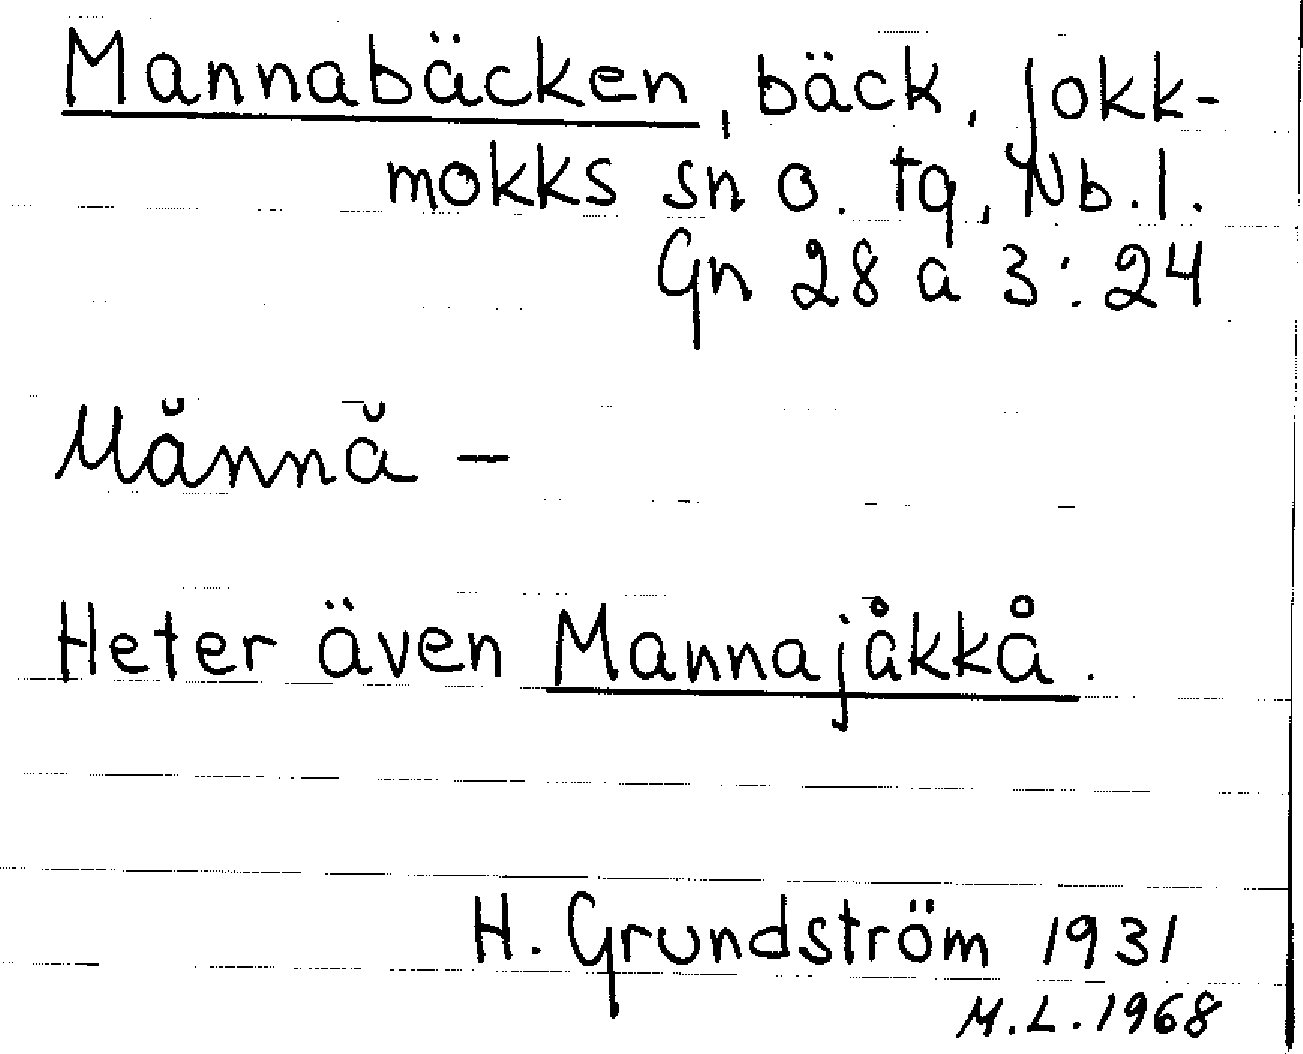 Mannabäcken, bäck, Jokk-
mokks sn o. tg, Nb.l.
Gn 28 a 3:24
Mănnă –
Heter även Mannajåkkå.
H. Grundström 1931
M.L. 1968